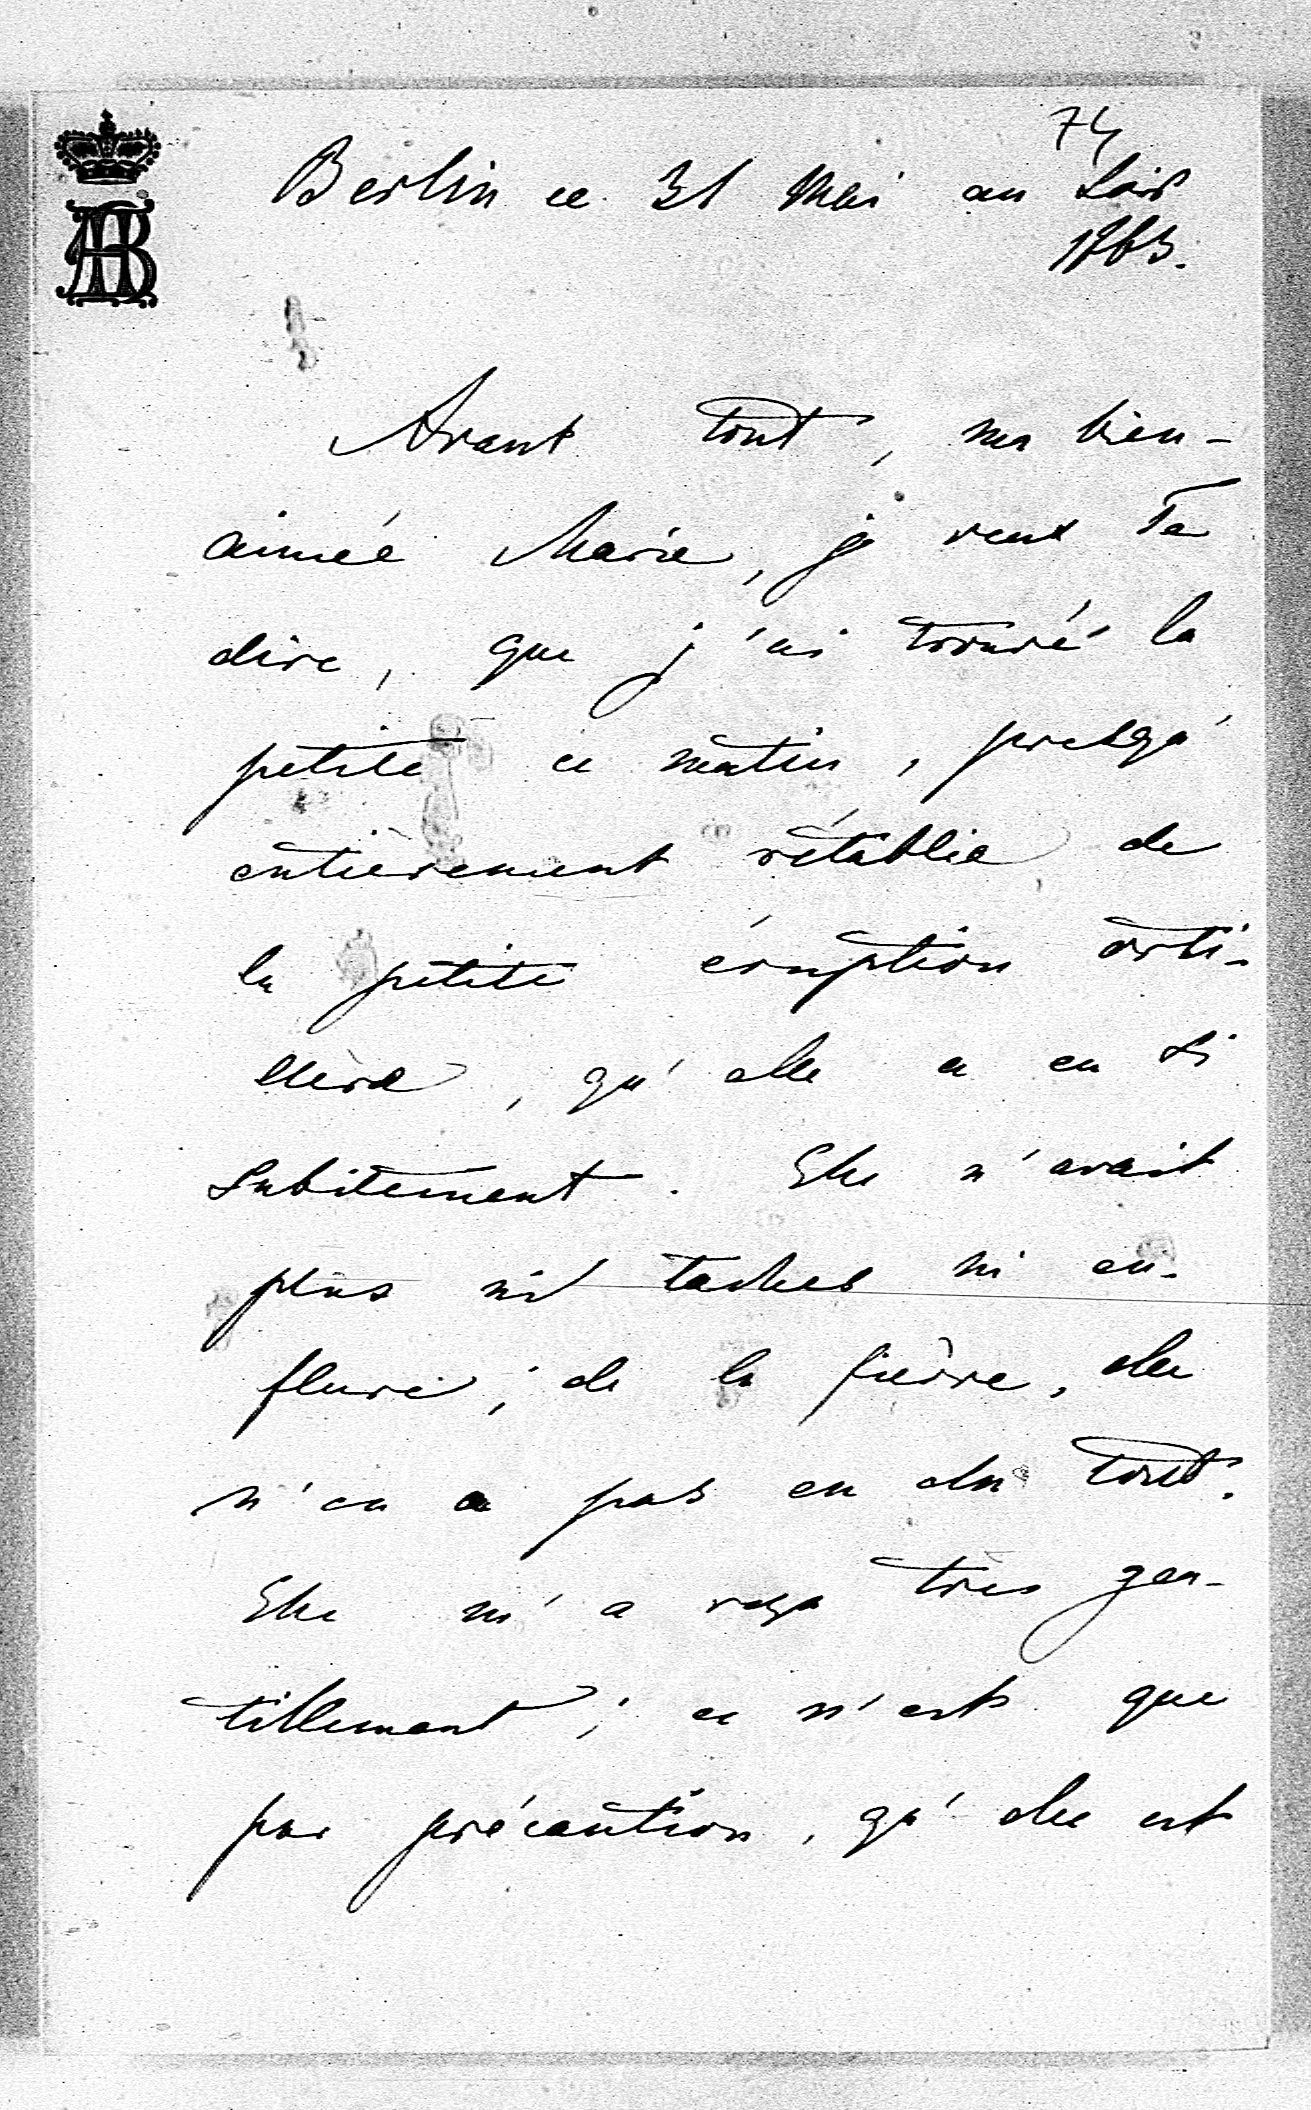 74
Berlin ce 31 Mai au Soir
1863.
Avant tout, ma bien-
aimée Marie, je veux Te
dire, que j'ai trouvé la
petite ce matin, presqu'
entièrement rétablie de
la petite éruption orti-
llère, qu'elle a eu si
subitement. Elle n'avait
plus ni taches ni en-
flure; de la fièvre, elle
n'en a pas eu du tout.
Elle m'a reçu très gen-
tillement; ce n'est que
par précaution, qu'elle est